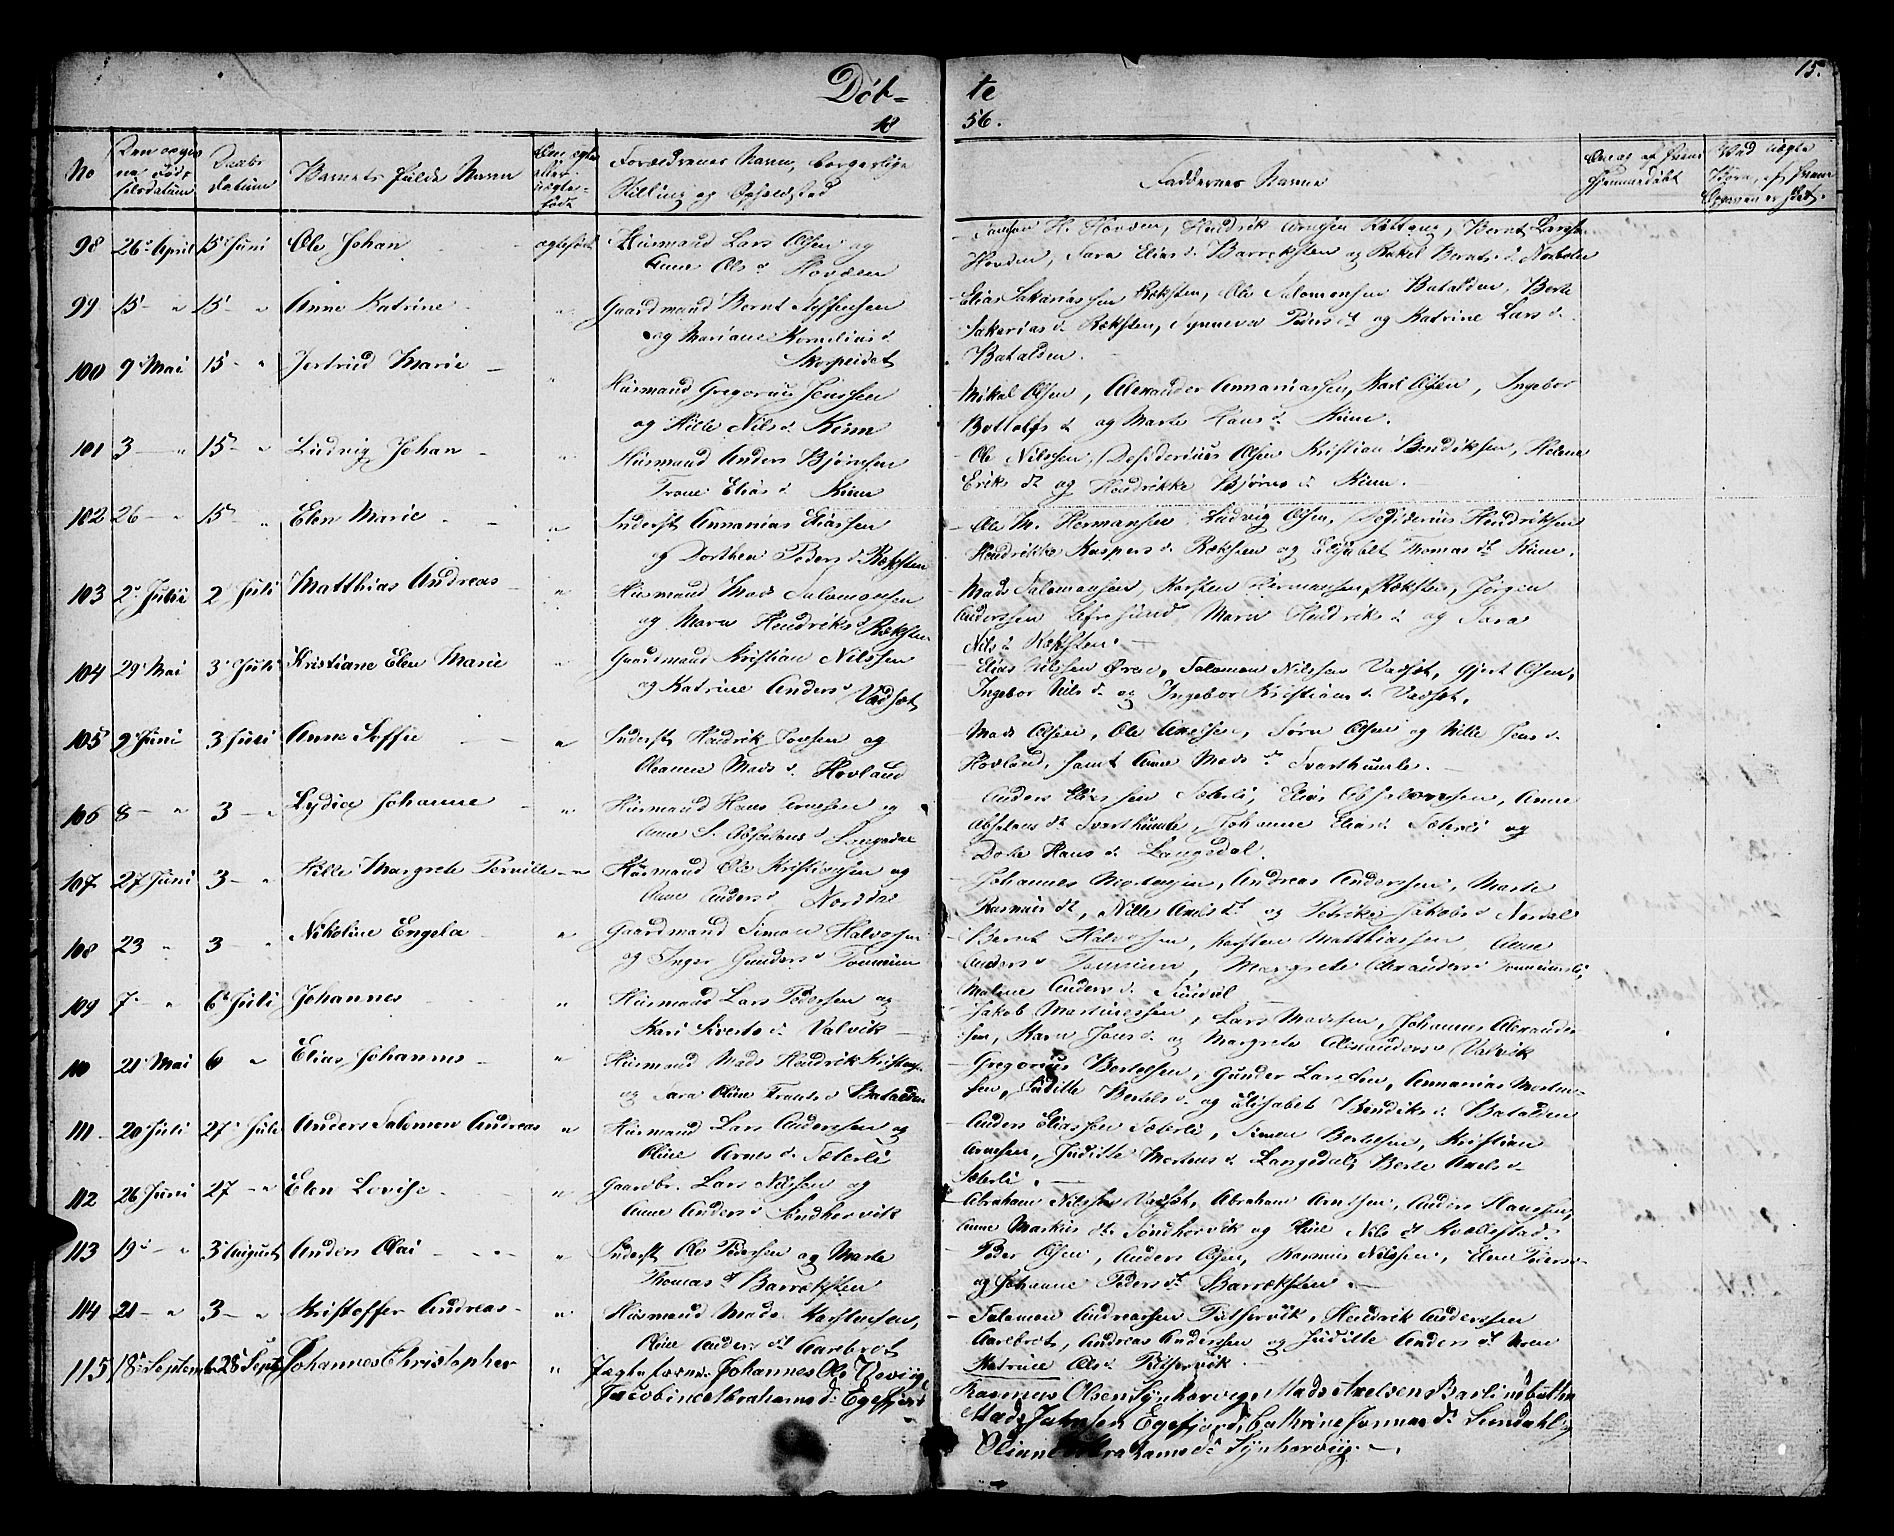 15.
Døb- te
18 56.
No
Den egne
Daabs datum
Barnets fulde Navn
Forældrenes Navn, borgerlige
Stilling og Opholdsted
Faddernes Navne
98 26de April 15de Juni Ole Johan ægtefødt Huusmand Lars Olsen og
Anne Ols d. Hovden
H. Hovden, Hendrik Arnesen Bernt Larsen
Hovden, Sara Elias d. Barreksten og Rakel Bernts d.
99 15 - " 15 - " Anne Katrine " Gaardmand Bernt Steffensen
og Mariane Kornelius d.
Skorpeidet
Elias Sakariassen Ræksten, Ole Salomonsen Batalden, Berte
Sakarias d. Ræksten, Synneva Peders dt og Katrine Lars d.
Batalden.
100 9 Mai 15 - " Jertrud Marie " Huusmand Gregorius Jenssen
og Nille Nils d. Kinn
Mikal Olsen, Alexander Annaniassen, Karl Olsen, Ingebor
Bottolfs d. og Marte Hans d. Kinn.
101 3 - " 15 - " Ludvig Johan " Huusmand Anders Bjørnsen
Trone Elias d. Kinn
Ole Nilssen, Desiderius Olsen Kristian Bendiksen, Helene
Eriks dt og Hendrikke Bjørns d. Kinn.
102 26 - " 15 - " Elen Marie " Inderst Annanias Eliassen
og Dorthea Peders d. Ræksten
Ole M. Hermansen, Ludvig Olsen, Desiderius Hendriksen
Hendrikke Kaspers d. Ræksten og Elisabet Thomas dt Kinn.
103 2 Juli 2 Juli Matthias Andreas " Huusmand Mads Salomonsen
og Maren Hendriks d. Ræksten
Mads Salomonsen, Karsten Hermansen Ræksten, Jørgen
Anderssen Maren Hendriks d. og Sara
Nils d. Ræksten.
104 29 Mai 3 Juli Kristiane Elen Marie " Gaardmand Kristian Nilssen
og Katrine Anders d. Vadset
Elias Nilssen Øren, Salomon Nilssen Vadset, Gjert Olsen,
Ingebor Nils d. og Ingebor Kristians d. Vadset.
105 9 Juni 3 Juli Anne Soffie " Inderst Hendrik Jonsen og
Oleanne Mads d. Hovland
Mads Olsen, Ole Axelsen, Søren Olsen og Nille Jens d.
Hovland, samt Anne Mads dt Svarthumle.
106 8 - " 3 - " Lydia Johanne " Huusmand Hans Arnesen og
Anne S. Absalons d. Langedal
Anders Eliassen Sæterli, Elias Absalonsen, Anne
Absalons dt Svarthumle, Johanne Elias d. Sæterli og
Dote Hans d. Langedal.
107 27 Juni 3 - " Nille Margrete Pernille " Huusmand Ole Kristiansen og
Anne Anders d. Norddal
Johannes Mortensen, Andreas Anderssen, Marte
Rasmus dt, Nille Axels dt og Petrike Jakobs d. Nordal
108 23 " 3 - Nikoline Engela " Gaardmand Simon Halvorsen
og Inger Gunders d. Tonnien
Bernt Halvorsen, Karsten Matthiassen Anne
Anders d. Margrete Alexanders d.
Maline Anders d. Sundal
109 7 - " 6 Juli Johannes " Huusmand Lars Pedersen og
Kari Siverts d. Valvik
Jakob Martinussen, Lars Madssen, Johannes Alexander-
sen, Karen Jens d. og Margrete Alexanders d. Valvik
110 21 Mai 6 " Elias Johannes " Huusmand Mads Hendrik
og Sara Oline Frants d. Batalden
Gregorius Bertelsen, Gunder Larssen, Annanias Morten-
sen, Juditte Bertels d. og Elisabet Bendiks d. Batalden
111 20 Juli 27 Juli Anders Salomon Andreas " Huusmand Lars Anderssen og
Oline Arnes d. Sæterli
Anders Eliassen Sæterli, Simon Bertelsen, Kristian
Arnesen, Juditte Mortens d. Langedal, Berte Axels d.
Sæterli.
112 26 Juni 27 - " Elen Lovise " Gaardbr. Lars Nilssen og
Anne Anders d. Sandhorvik
Abraham Nilssen Vadset, Abraham Arnesen, Anders Hanssen,
Anne Markus dt Sandhorvik og Oline Nils dt Kvellestad.
113 19 - " 3 August Anders Olai " Inderst Ole Pedersen og Marte
Thomas dt Barreksten
Peder Olsen, Anders Olsen, Rasmus Nilssen, Elen Peders
og Johanne Peders dt Barreksten.
114 21 - " 3 - " Kristoffer Andreas " Huusmand Mads Karstensen,
Oline Anders dt Aarebrot
Salomon Andreassen Hendrik Anderssen
Aarebrot, Andreas Anderssen og Juditte Anders dt
Katrine Ols d.
115 18de September 28 Sept. Johannes Christopher " Johannes Ols
Jacobine Abrahams d. Egefjord
Rasmus Olsen Synhorvig, Mads Axelsen Barlindbotten
Mads Johnsen Egefjord, Cathrine Jonnas dt Sundahl og
Oliane Abrahams dt Synhorvig.